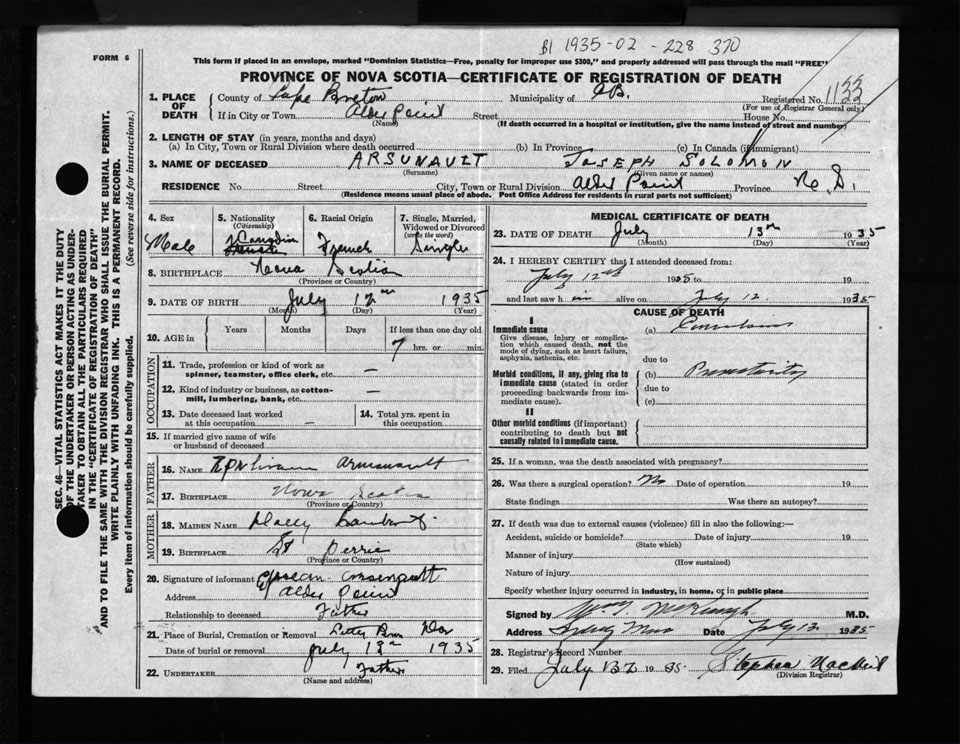 B1 1935-02-228 370
FORM 6
This form if placed in an envelope, marked "Dominion Statistics—Free, penalty for improper use $300," and properly addressed will pass through the mail "FREE"
PROVINCE OF NOVA SCOTIA—CERTIFICATE OF REGISTRATION OF DEATH
1. PLACE OF DEATH County of Cape Breton Municipality of C.B. Registered No. 1133
(For use of Registrar General only)
If in City or Town Alder Point Street House No.
(Name) (If death occurred in a hospital or institution, give the name instead of street and number)
2. LENGTH OF STAY (in years, months and days)
(a) In City, Town or Rural Division where death occurred (b) In Province (c) In Canada (if immigrant)
3. NAME OF DECEASED ARSUNAULT JOSEPH SOLOMON
(Surname) (Given name or names)
RESIDENCE No. Street City, Town or Rural Division Alder Point Province N. S.
(Residence means usual place of abode. Post Office Address for residents in rural parts not sufficient)
4. Sex Male
5. Nationality (Citizenship) Canadian
6. Racial Origin French
7. Single, Married, Widowed or Divorced (write the word) Single
8. BIRTHPLACE Nova Scotia
(Province or Country)
9. DATE OF BIRTH July 12th 1935
(Month) (Day) (Year)
10. AGE in Years Months Days If less than one day old
7 hrs. or min.
OCCUPATION
11. Trade, profession or kind of work as spinner, teamster, office clerk, etc. —
12. Kind of industry or business, as cotton-mill, lumbering, bank, etc. —
13. Date deceased last worked at this occupation —
14. Total yrs. spent in this occupation
15. If married give name of wife or husband of deceased
FATHER
16. NAME
17. BIRTHPLACE Nova Scotia
(Province or Country)
MOTHER
18. MAIDEN NAME
19. BIRTHPLACE St Perrie
(Province or Country)
20. Signature of informant
Address Alder Point
Relationship to deceased Father
21. Place of Burial, Cremation or Removal
Date of burial or removal July 13th 1935
22. UNDERTAKER Father
(Name and address)
MEDICAL CERTIFICATE OF DEATH
23. DATE OF DEATH July 13th 1935
(Month) (Day) (Year)
24. I HEREBY CERTIFY that I attended deceased from:
July 12th 1935 to 19
and last saw him alive on July 12 1935
CAUSE OF DEATH
I
Immediate cause (a) Convulsions
Give disease, injury or complication which caused death, not the mode of dying, such as heart failure, asphyxia, asthenia, etc.
due to
Morbid conditions, if any, giving rise to immediate cause (stated in order proceeding backwards from immediate cause). (b) Prematurity
due to
(c)
II
Other morbid conditions (if important) contributing to death but not causally related to immediate cause.
25. If a woman, was the death associated with pregnancy?
26. Was there a surgical operation? No Date of operation 19
State findings Was there an autopsy?
27. If death was due to external causes (violence) fill in also the following:—
Accident, suicide or homicide? Date of injury 19
(State which)
Manner of injury
(How sustained)
Nature of injury
Specify whether injury occurred in industry, in home, or in public place
Signed by M.D.
Address Sydney Mines Date July 13 1935
28. Registrar's Record Number
29. Filed July 13 1935 Stephen
(Division Registrar)
SEC. 46—VITAL STATISTICS ACT MAKES IT THE DUTY
OF THE UNDERTAKER OR PERSON ACTING AS UNDER-
TAKER TO OBTAIN ALL THE PARTICULARS REQUIRED
IN THE "CERTIFICATE OF REGISTRATION OF DEATH"
AND TO FILE THE SAME WITH THE DIVISION REGISTRAR WHO SHALL ISSUE THE BURIAL PERMIT.
WRITE PLAINLY WITH UNFADING INK. THIS IS A PERMANENT RECORD.
Every item of information should be carefully supplied. (See reverse side for instructions.)